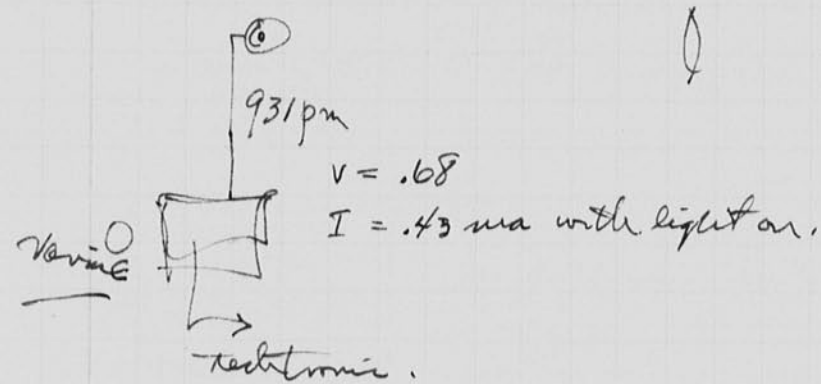 931 pm
v = .68
I = .43 ma with light on.
techtronic.